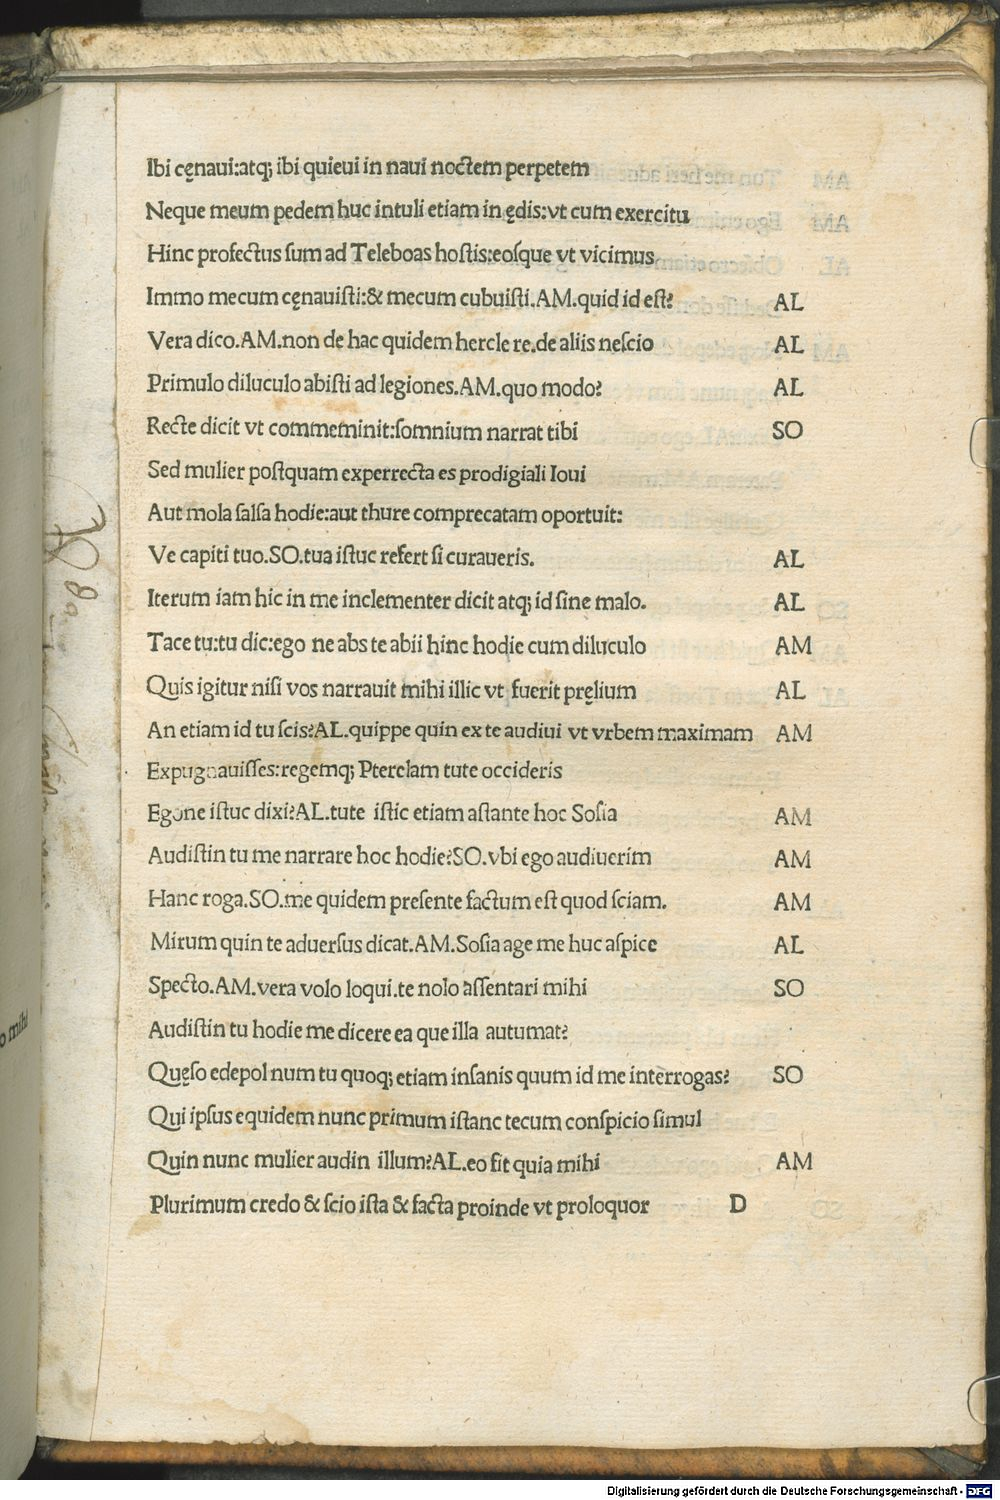 Ibi cęnaui:atq; ibi quieui in naui noctem perpetem
Neque meum pedem huc intuli etiam in ędis:vt cum exercitu
Hinc profectus ſum ad Teleboas hoſtis:eoſque vt vicimus
Immo mecum cęnauiſti:& mecum cubuiſti.AM.quid id eſt? AL
Vera dico.AM.non de hac quidem hercle re.de aliis neſcio AL
Primulo diluculo abiſti ad legiones.AM.quo modo? AL
Recte dicit vt commeminit:ſomnium narrat tibi SO
Sed mulier poſtquam experrecta es prodigiali Ioui
Aut mola ſalſa hodie:aut thure comprecatam oportuit:
Ve capiti tuo.SO.tua iſtuc refert ſi curaueris. AL
Iterum iam hic in me inclementer dicit atq; id ſine malo. AL
Tace tu:tu dic:ego ne abs te abii hinc hodie cum diluculo AM
Quis igitur niſi vos narrauit mihi illic vt fuerit pręlium AL
An etiam id tu ſcis?AL.quippe quin ex te audiui vt vrbem maximam AM
Expugnauiſſes:regemq; Pterelam tute occideris
Egone iſtuc dixi?AL.tute iſtic etiam aſtante hoc Soſia AM
Audiſtin tu me narrare hoc hodie?SO.vbi ego audiuerim AM
Hanc roga.SO.me quidem preſente factum eſt quod ſciam. AM
Mirum quin te aduerſus dicat.AM.Soſia age me huc aſpice AL
Specto.AM.vera volo loqui.te nolo aſſentari mihi SO
Audiſtin tu hodie me dicere ea que illa autumat?
Quęſo edepol num tu quoq; etiam inſanis quum id me interrogas? SO
Qui ipſus equidem nunc primum iſtanc tecum conſpicio ſimul
Quin nunc mulier audin illum?AL.eo fit quia mihi AM
Plurimum credo & ſcio iſta & facta proinde vt proloquor D
o mihi
Digitalisierung gefördert durch die Deutsche Forschungsgemeinschaft - DFG